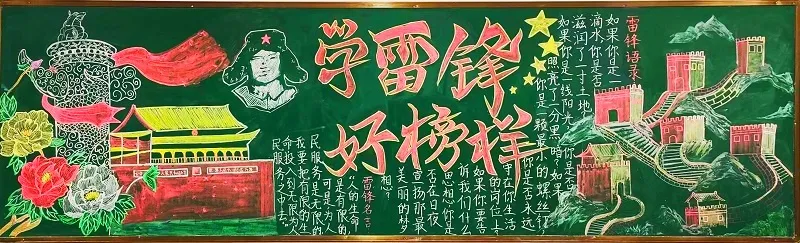 学雷锋
好榜样
雷锋语录
如果你是一
滴水，你是否
滋润了一寸土地
如果你是一线阳光，你是否
照亮了一分黑暗？如果
你是一颗最小的螺丝钉
你是否永远
守在你生活
的岗位上？
如果你要告
诉我们什么
思想，你是
否在日夜
宣扬那最
美丽的梦
想？
雷锋名言
“人的生命
是有限的
可是为人
民服务是无限的
我要把有限的生
命投入到无限的为人
民服务之中去。”